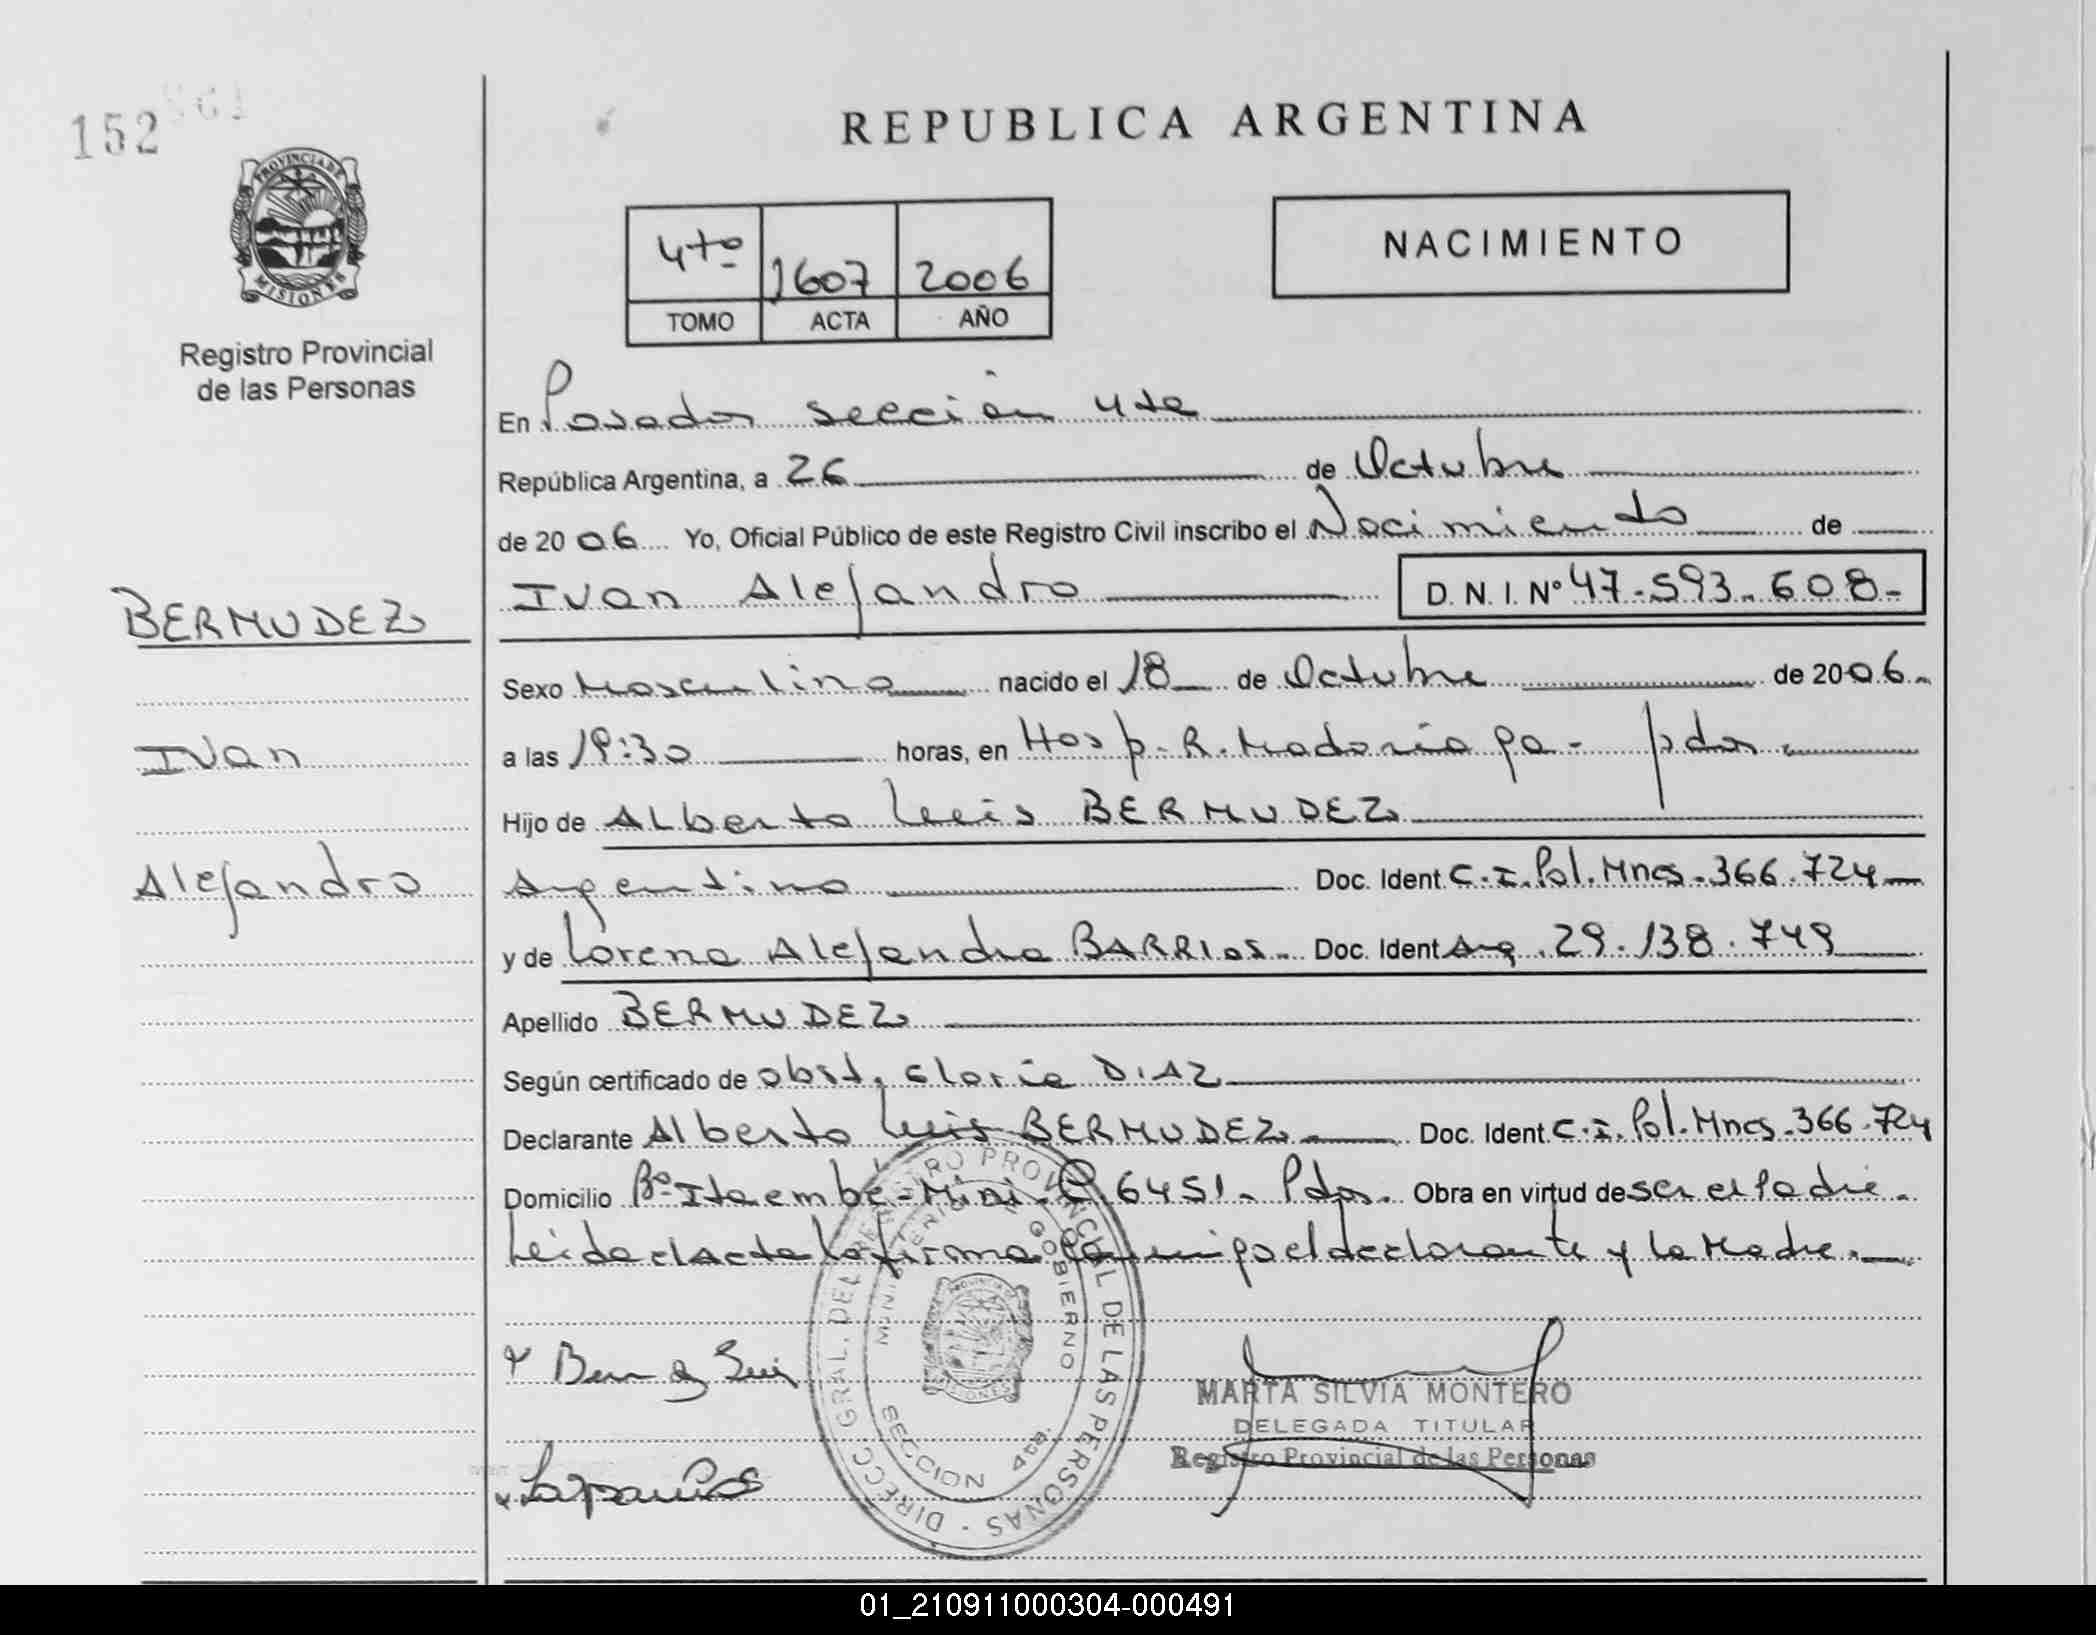 152
PROVINCIA DE
MISIONES
Registro Provincial
de las Personas
BERMUDEZ
Ivan
Alejandro
REPUBLICA ARGENTINA
4to 1607 2006
TOMO ACTA AÑO
NACIMIENTO
En Posadas sección 4ta
República Argentina, a 26 de Octubre
de 2006 Yo, Oficial Público de este Registro Civil inscribo el Nacimiento de
Ivan Alejandro D.N.I. Nº 47-593-608-
Sexo Masculino nacido el 18 de Octubre de 2006.
a las 19:30 horas, en Hosp. R. Madariaga - Pdas.
Hijo de Alberto Luis BERMUDEZ
Argentino Doc. Ident C.I. Pol. Mnes. 366.724
y de Lorena Alejandra BARRIOS. Doc. Ident Arg. 29.138.749
Apellido BERMUDEZ
Según certificado de obst. Gloria DIAZ
Declarante Alberto Luis BERMUDEZ Doc. Ident C.I. Pol. Mnes. 366.724
Domicilio Bº Itaembé-Mini - 6451. Pdas. Obra en virtud de ser el Padre.
Leida el Acta la firma conmigo el declarante y la Madre.
DIRECC. GRAL. DEL REGISTRO PROVINCIAL DE LAS PERSONAS -
MINISTERIO DE GOBIERNO
SECCION 4ta.
MARTA SILVIA MONTERO
DELEGADA TITULAR
Registro Provincial de las Personas
01_210911000304-000491